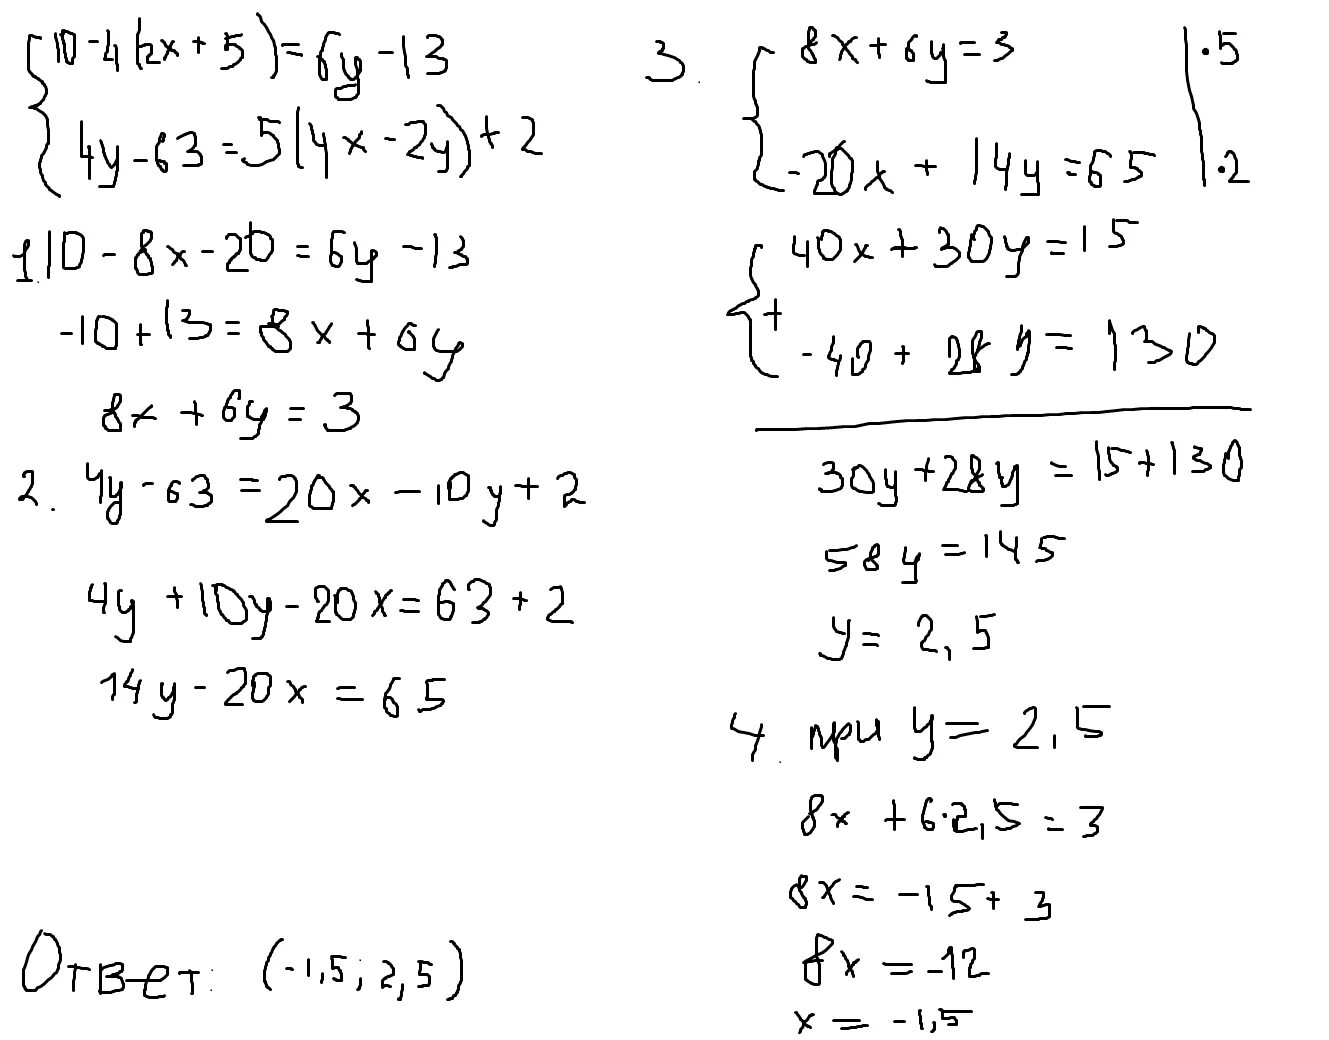 10-4(2x+5)=6y-13
4y-63=5(4x-2y)+2
1. 10-8x-20=6y-13
-10+13=8x+6y
8x+6y=3
2. 4y-63=20x-10y+2
4y+10y-20x=63+2
14y-20x=65
Ответ: (-1,5; 2,5)
3. 8x+6y=3 |·5
-20x+14y=65 |·2
40x+30y=15
+
-40+28y=130
30y+28y=15+130
58y=145
y=2,5
4. при y=2,5
8x+6·2,5=3
8x=-15+3
8x=-12
x=-1,5